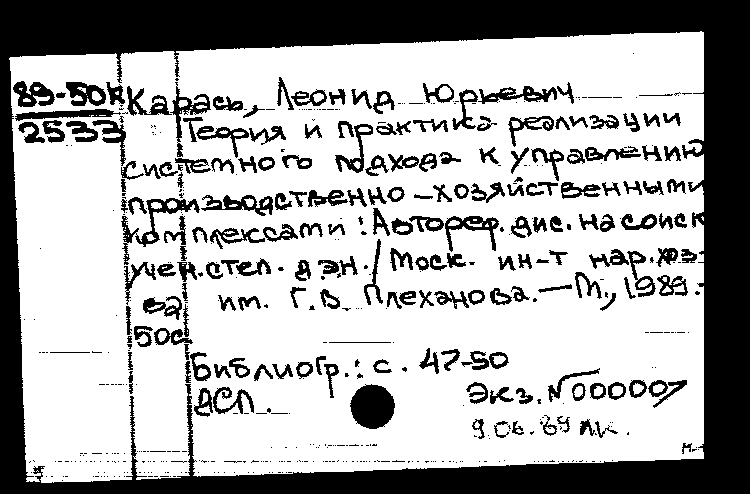 89-50к Карась, Леонид Юрьевич
2533 Теория и практика реализации
системного подхода к управлению
производственно-хозяйственными
комплексами : Автореф. дис. на соиск
учен. степ. д.э.н. / Моск. ин-т нар. хоз-
ва им. Г.В. Плеханова. — М., 1989. -
50с.
Библиогр.: с. 47-50
ДСП. Экз. № 000007
9.06.89